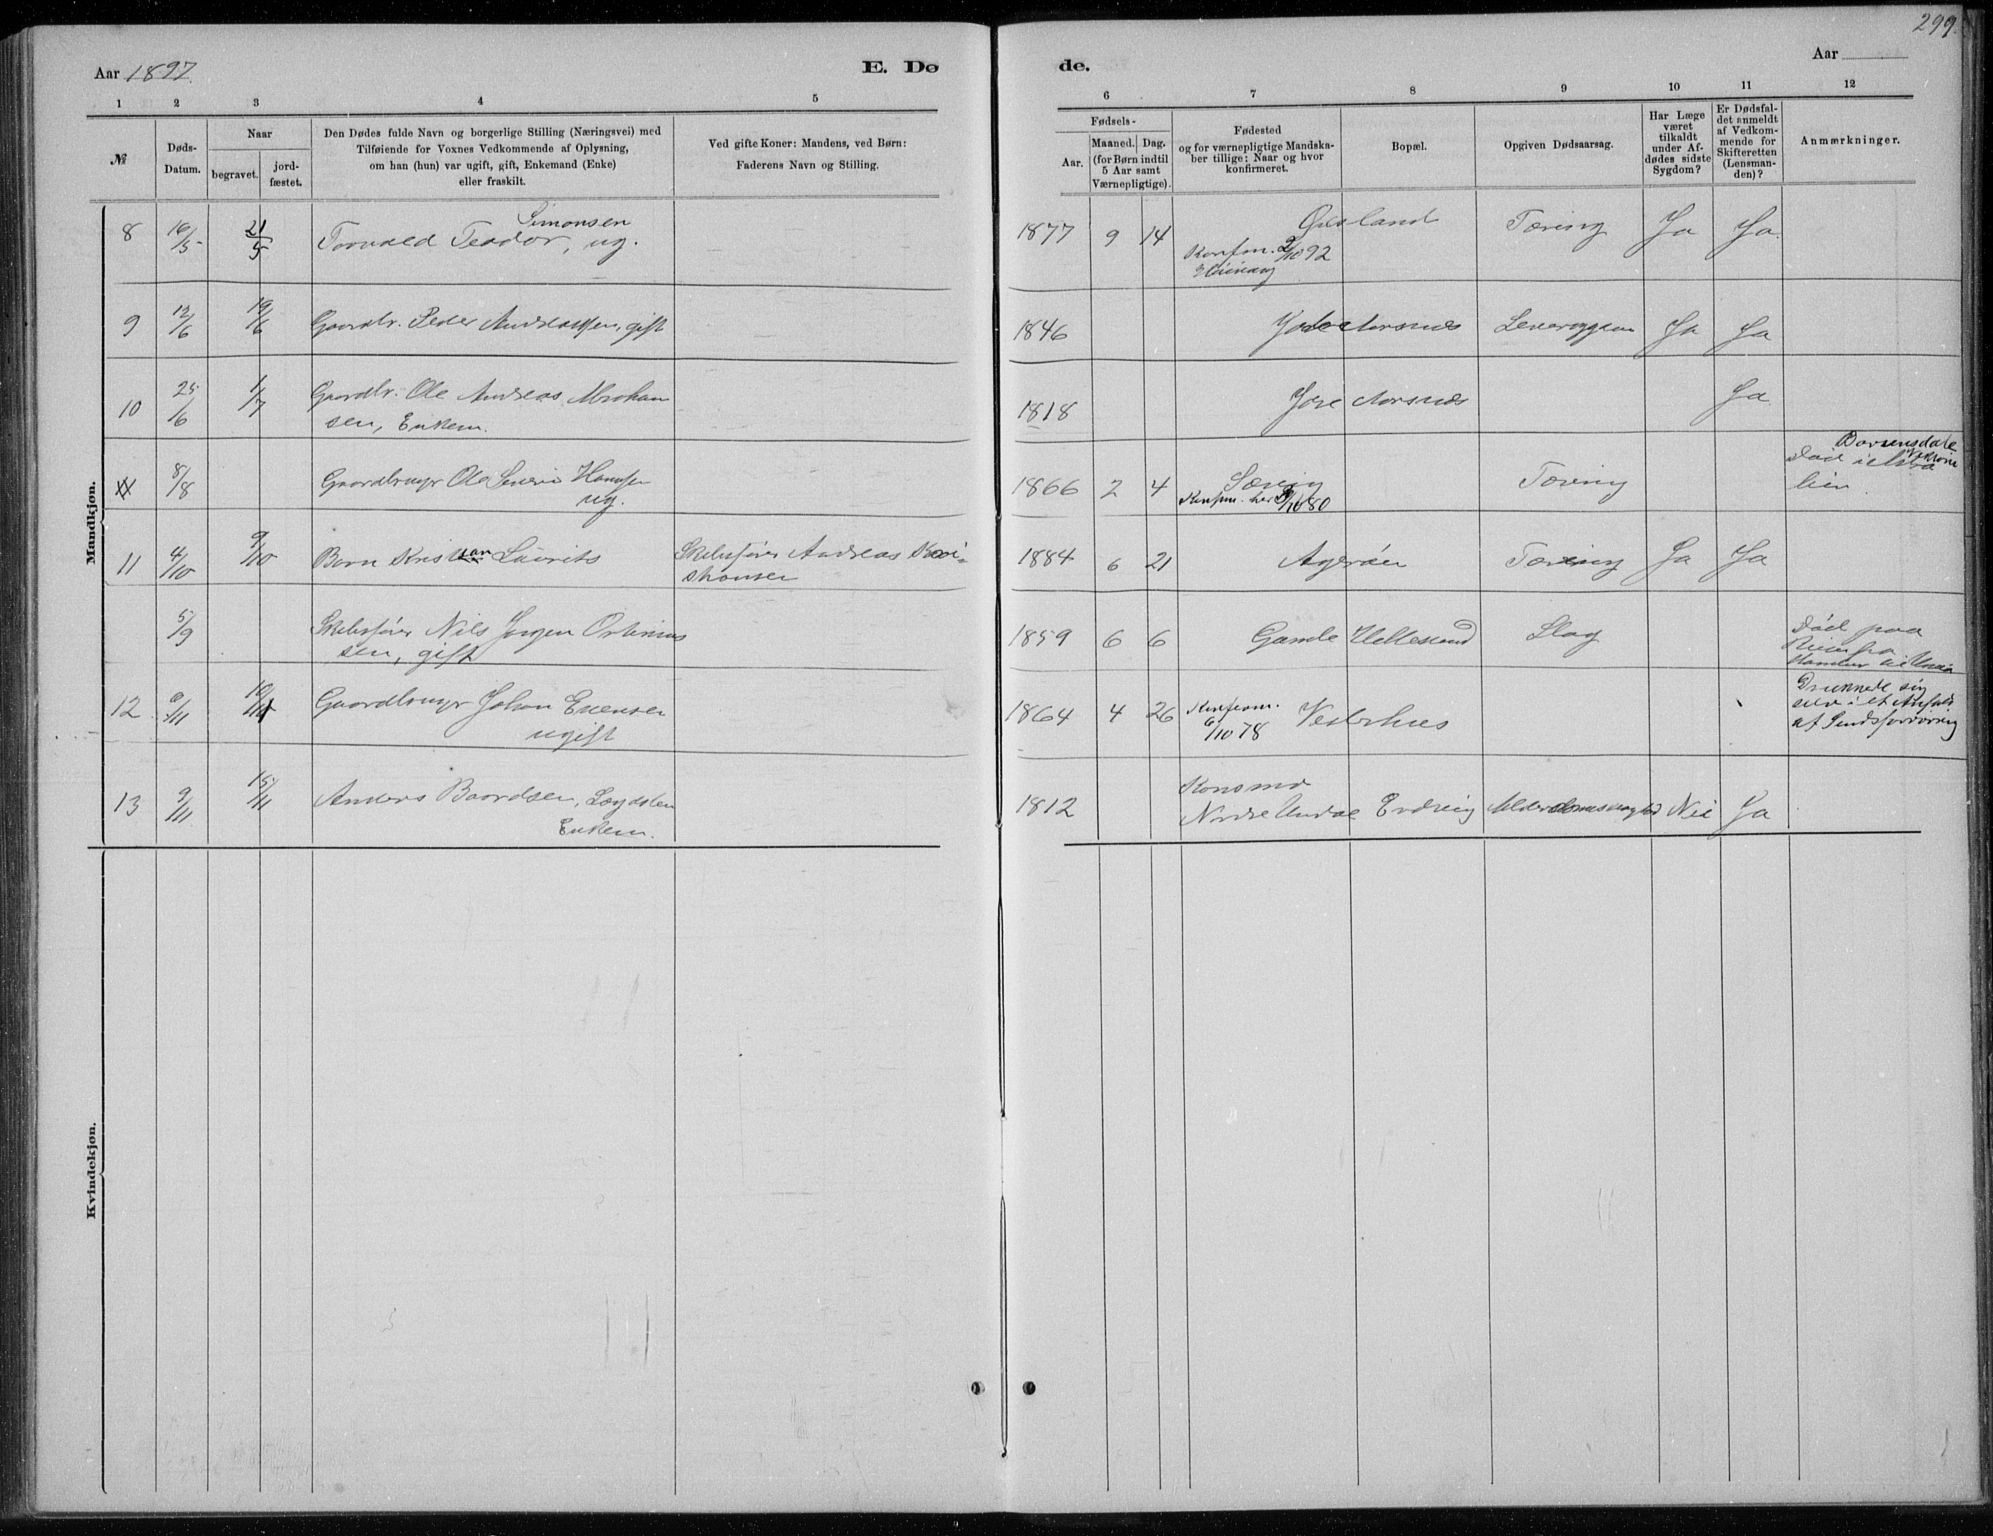 299.
Aar 1897.
E. Dø
de.
Aar
1 2 3 4 5
6 7 8 9 10 11 12
№
Døds-Datum.
Naar
begravet.
jord-fæstet.
Den Dødes fulde Navn og borgerlige Stilling (Næringsvei) med
Tilføiende for Voxnes Vedkommende af Oplysning,
om han (hun) var ugift, gift, Enkemand (Enke)
eller fraskilt.
Ved gifte Koner: Mandens, ved Børn:
Faderens Navn og Stilling.
Fødsels-
Aar.
Maaned. Dag.
(for Børn indtil
5 Aar samt
Værnepligtige).
Fødested
og for værnepligtige Mandska-
ber tillige: Naar og hvor
konfirmeret.
Bopæl.
Opgiven Dødsaarsag.
Har Læge
været
tilkaldt
under Af-
dødes sidste
Sygdom?
Er Dødsfal-
det anmeldt
af Vedkom-
mende for
Skifteretten
(Lensman-
den)?
Anmærkninger.
Mandkjøn.
Simonsen
8 16/5 21/5 Torvald Teodor, ug. 1877 9 14 Tæring Ja Ja.
Konfm. 2/10 92
9 12/6 19/6 Gaardbr. Peder Andreassen, gift 1846 Aarsnes Ja Ja
10 25/6 1/7 Gaardbr. Ole Andreas Abraham
sen, Enkem. 1818 Aarsnes Ja.
8/8 Gaardbruger Ole Hansen
ug. 1866 2 4 Tæring
Konfm. her 3/10 80
Død i
lien.
11 4/10 9/10 Barn Kristian Laurits Skibsfører Andreas 1884 6 21 Agerøen Tæring Ja Ja
5/9 Skibsfører Nils Jørgen
sen, gift 1859 6 6 Gamle Hellesund Slag
Død paa
Reise fra
12 6/11 10/11 Gaardbruger Johan Evensen
ugift 1864 4 26 Konfirm.
6/10 78 Vesterhus
Druknede sig
selv i et Anfald
af Sindsforvirring
13 9/11 15/11 Anders Baardsen, Lægdslem
Enkem. 1812 Konsmo
Nordre Undal Eidvig Alderdomssvaghed Nei Ja
Kvindekjøn.